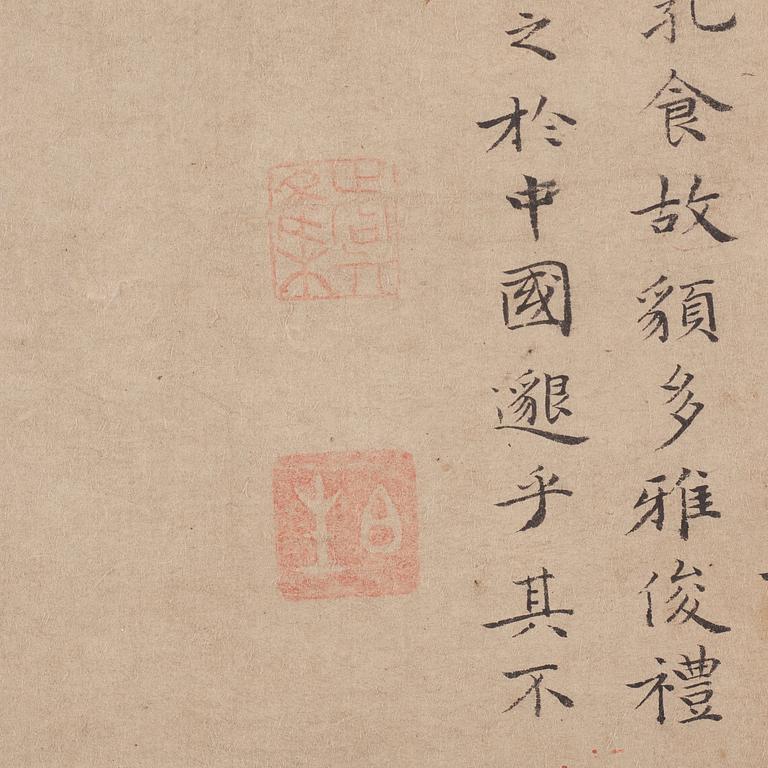 食故貌多雅俊禮
之於中國邈乎其不